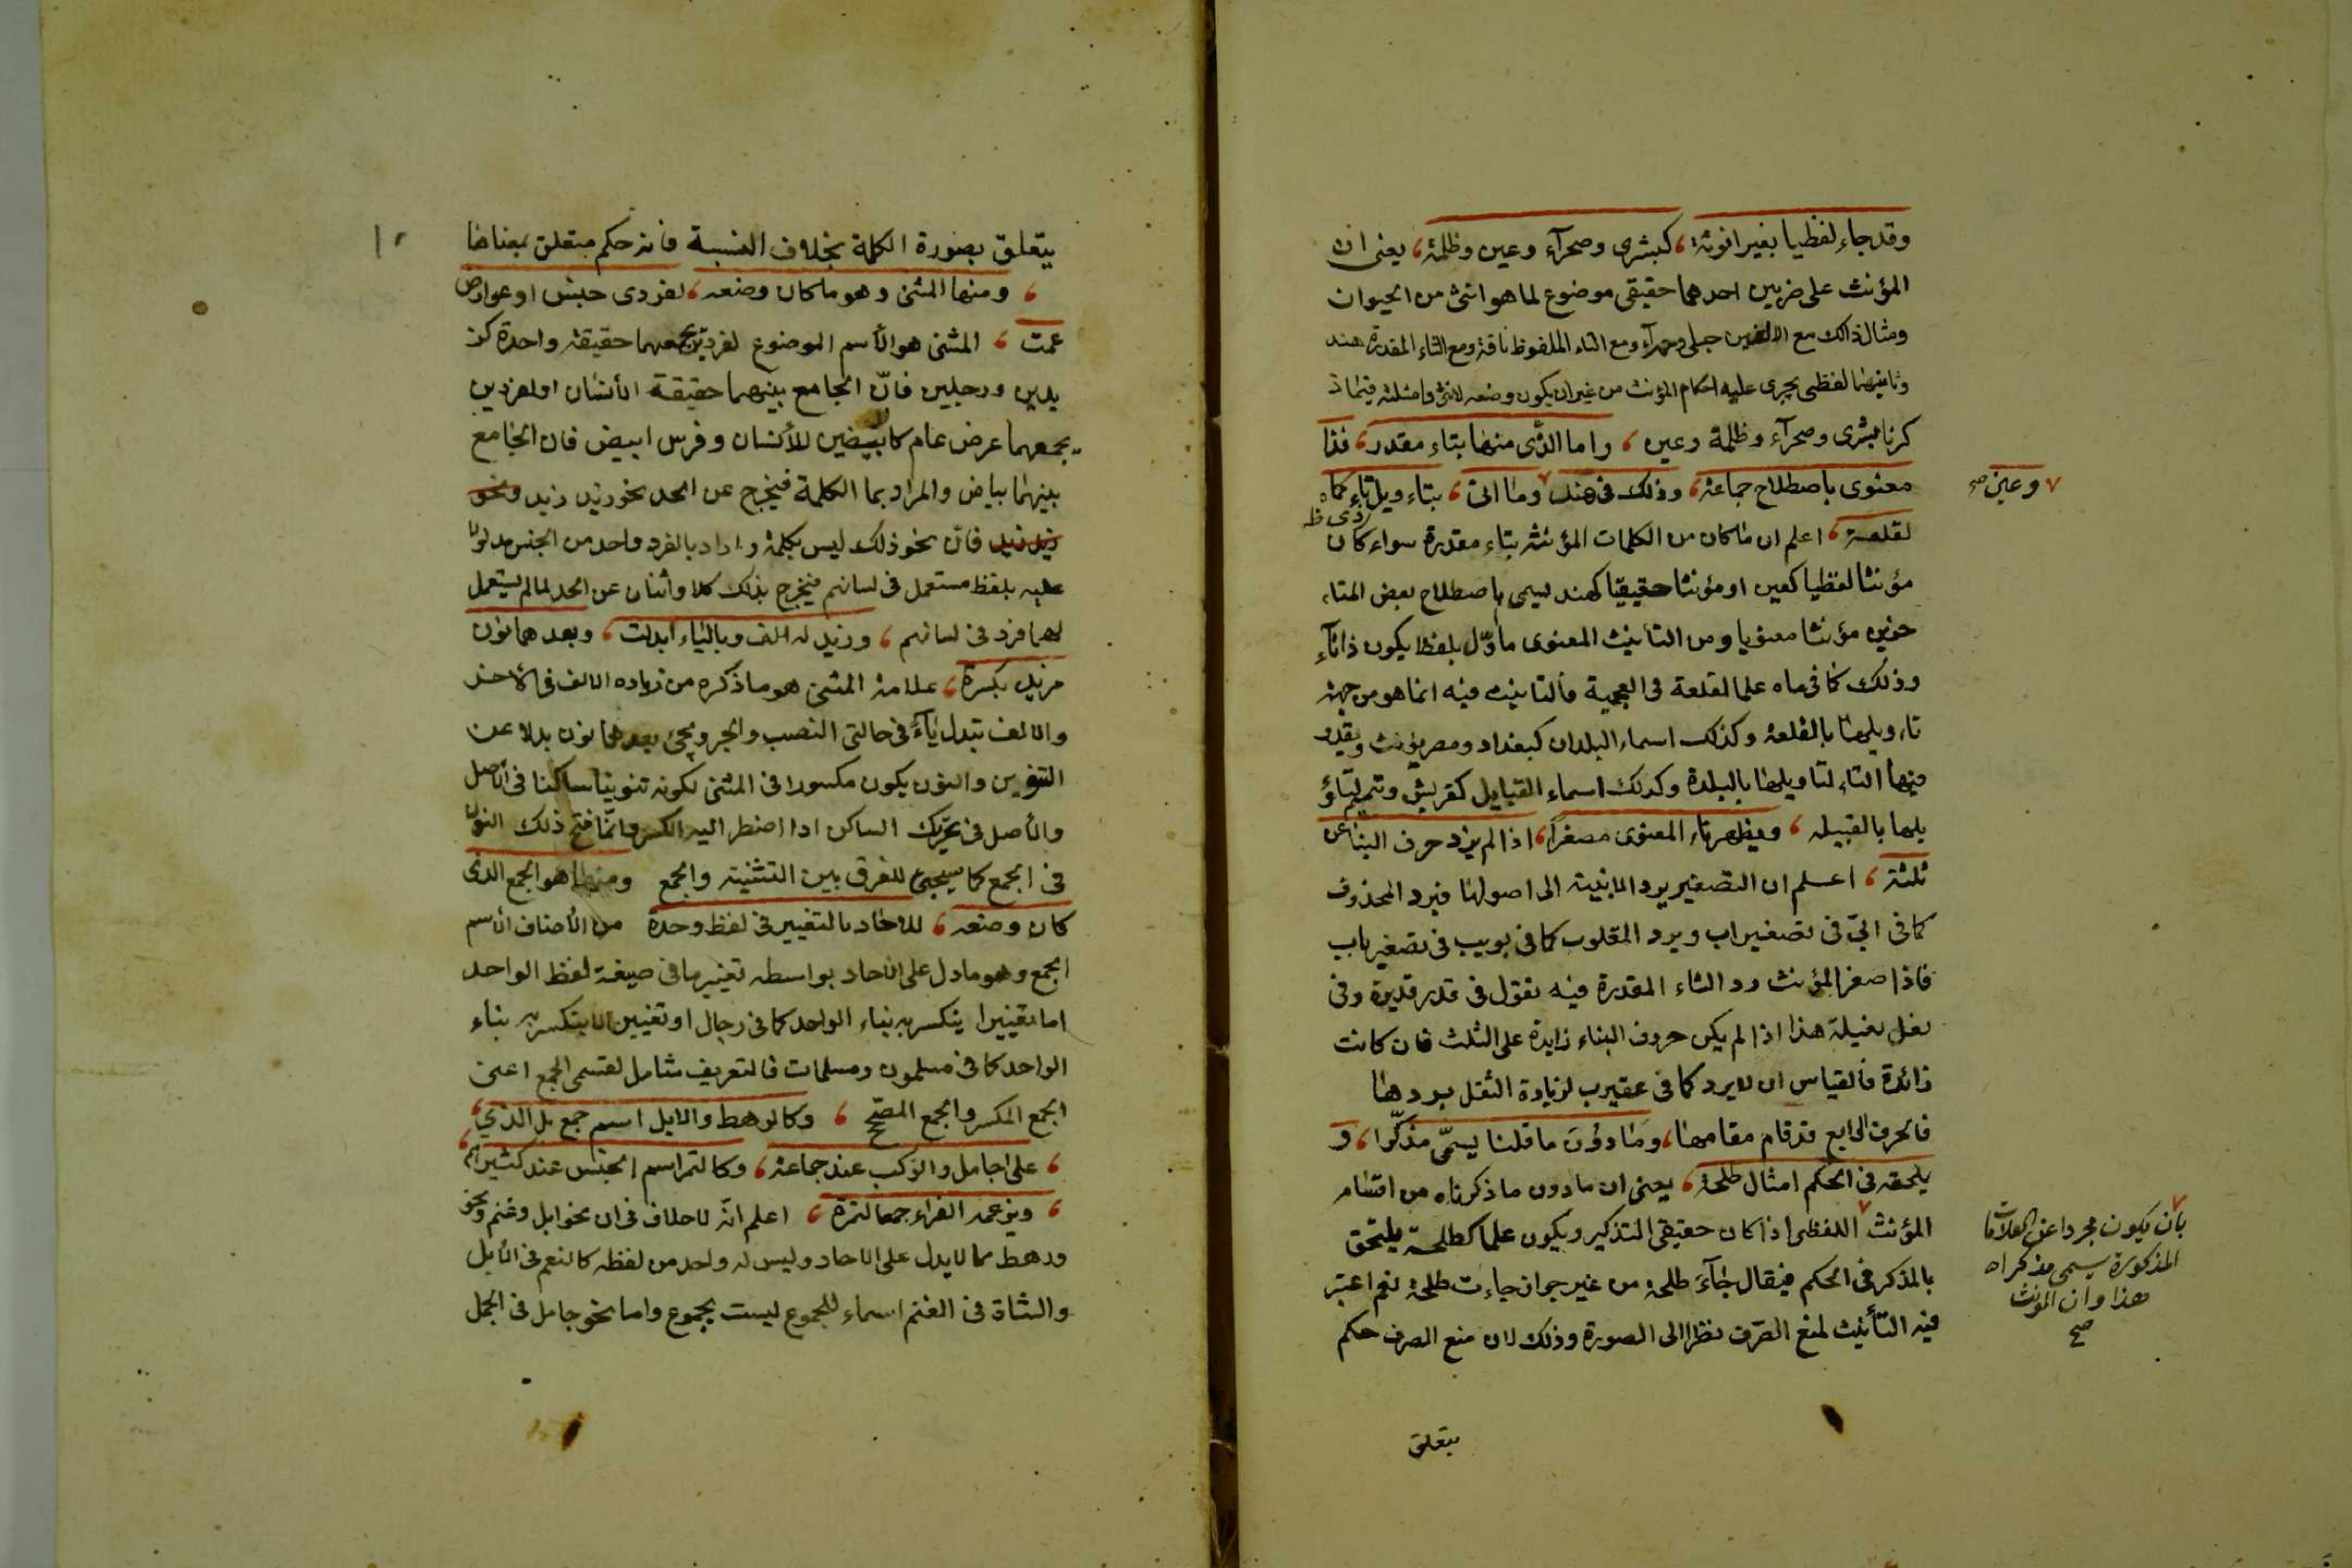 وقد جاء لفظيا بغير انوثة، كبشرى وصحرآء وعين وظلمة، يعنى ان
المؤنث على ضربين احدهما حقيقى موضوع لما هو انثى من الحيوان
ومثال ذالك مع الالفين حبلى وحمرآء ومع التاء الملفوظ ناقة ومع التاء المقدرة هند
وثانيهما لفظى يجرى عليه احكام المؤنث من غير ان يكون وضعه لانثى وامثلته فيما ذ
كرنا بشرى وصحرآء وظلمة وعين ، واما الذى منهما بتاء مقدر، فذا
معنوى باصطلاح جماعة، وذلك فى هند وما اتى ، بتاءويل تاء كماه
ذى ظ
لقلعة، اعلم ان ما كان من الكلمات المؤنثه بتاء مقدرة سواء كان
مؤنثا لفظيا كعين او مؤنثا حقيقيا كهند ليسمى باصطلاح بعض المتاء
خرين مؤنثا معنويا ومن التأنيث المعنوى ماأوّل بلفظ يكون ذا تاء
وذلك كما فى ماه علما لقلعة فى العجمية فالتانيث فيه انما هو من جهة
تاءويلها بالقلعة وكذلك اسماء البلدان كبغداد ومصر يؤنث ويقدر
فيها التاء لتاويلها بالبلدة وكذلك اسماء القبايل كقريش وتميم لتاؤ
يلها بالقبيله ، ويظهر تاء المعنوى مصغرا، اذا لم يزد حرف البنا عن
ثلثة ، اعلم ان التصغير يرد الابنية الى اصولها فيرد المحذوف
كما فى ابىّ فى تصغير اب ويرد المقلوب كما فى بويب فى تصغير باب
فاذا صغر المؤنث رد التاء المقدرة فيه نقول فى قدر قديرة وفى
نعل نعيلة هذا اذا لم يكن حروف البناء زايدة على الثلث فان كانت
زائدة فالقياس ان لا يرد كما فى عقيرب لزيادة الثقل بردها
فالحرف الرابع قد قام مقامها، وما دون ما قلنا يسمّى مذكّرا، و
يلحقه فى الحكم امثال طلحة، يعنى ان ما دون ما ذكرناه من اقسام
المؤنث اللفظى اذا كان حقيقى التذكير ويكون علما كطلحة يلتحق
بالمذكر فى الحكم فيقال جآء طلحة من غير جواز جاءت طلحة نعم اعتبر
فيه التأنيث لمنع الصرف نظرا الى الصورة وذلك لان منع الصرف حكم
يتعلق
وعين صح
بان يكون مجردا عن العلامات
المذكورة يسمى مذكرا
هذا وان المؤنث
صح
يتعلق بصورة الكلمة بخلاف النسبة فانه حكم متعلق بمعناها
، ومنها المثنى وهو ما كان وضعه، لفردى جنس او عوارض
عمت ، المثنى هو الأسم الموضوع لفردين يجمعهما حقيقة واحدة كز
يدين ورجلين فانّ الجامع بينهما حقيقة الأنسان او لفردين
يجمعهما عرض عام كابيضين للأنسان وفرس ابيض فان الجامع
بينهما بياض والمراد بما الكلمة فيخرج عن الحد نحو زيد زيد ونحو
زيد زيد فانّ نحو ذلك ليس بكلمة واراد بالفرد واحد من الجنس مدلولا
عليه بلفظ مستعمل فى لسانهم فيخرج بذلك كلا واثنان عن الحد لما لم يستعمل
لهما فرد فى لسانهم ، وزيد له الف وبالياء ابدلت ، وبعد هما نون
مزيد بكسرة ، علامة المثنى هو ما ذكره من زياده الالف فى الأخر
والالف تبدل ياءً فى حالتى النصب والجر ويجئ بعدهما نون بدلا عن
التنوين والنون يكون مكسورا فى المثنى لكونه تنوينا ساكنا فى الأصل
والأصل فى تحريك الساكن اذا اضطر اليه الكسر وانما فتح ذلك النون
فى الجمع كما سيجئ للفرق بين التثنية والجمع ومنها هو الجمع الذى
كان وضعه ، للاحاد بالتغيير فى لفظ وحدة من الأصناف الأسم
الجمع وهو ما دل على الأحاد بواسطه تغيير ما فى صيغة لفظ الواحد
اما تغييرا ينكسر به بناء الواحد كما فى رجال او تغييرا لا ينكسر به بناء
الواحد كما فى مسلمون ومسلمات فالتعريف شامل لقسمى الجمع اعنى
الجمع المكسر والجمع المصحح ، وكالرهط والابل اسم جمع بل الذي،
، على اجامل والركب عند جماعة، وكالتمر اسم الجنس عند كثيرهم
، ويزعمه الفراء جمعا لتمرة ، اعلم انّه لا خلاف فى ان نحو ابل وغنم ونحو
ورهط مما لا يدل على الاحاد وليس له واحد من لفظه كالنعم فى الأبل
والشاة فى الغنم اسماء للجموع ليست بجموع واما نحو جامل فى الجمل